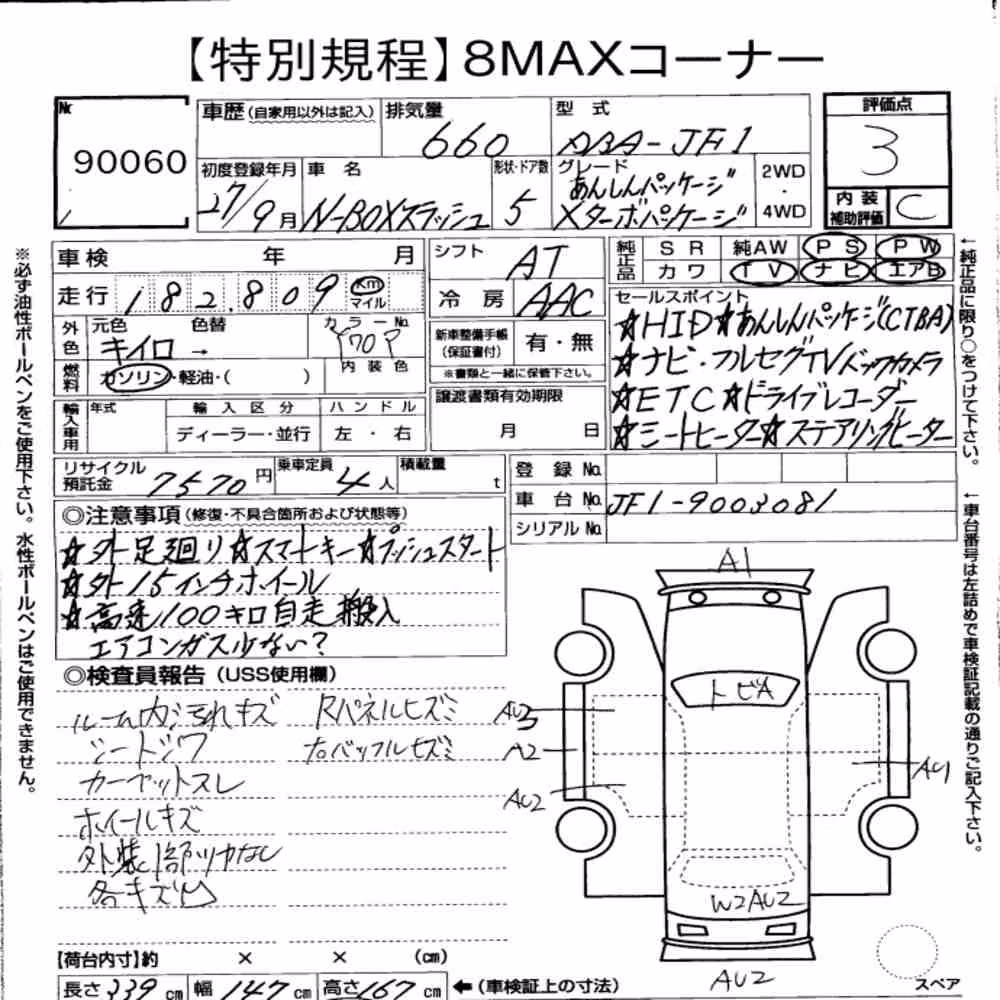 【特別規程】8MAXコーナー
No.
90060
車歴(自家用以外は記入)
排気量
660
型式
DBA-JF1
評価点
3
初度登録年月
27/9月
車名
N-BOXスラッシュ
形状・ドア数
5
グレード
あんしんパッケージ
Xターボパッケージ
2WD
・
4WD
内装
補助評価
C
車検 年 月
シフト
AT
純正品
SR 純AW PS PW
カワ TV ナビ エアB
走行 182,809 Km
マイル
冷房 AAC
セールスポイント
☆HID☆あんしんパッケージ(CTBA)
☆ナビ・フルセグTVバックカメラ
☆ETC☆ドライブレコーダー
☆シートヒーター☆ステアリングヒーター
外色
元色 色替 カラーNo.
キイロ →
内装色
新車整備手帳
(保証書付)
有・無
※書類と一緒に保管下さい。
燃料
ガソリン・軽油・( )
輸入車用
年式 輸入区分 ハンドル
ディーラー・並行 左・右
譲渡書類有効期限
月 日
リサイクル
預託金
7570円
乗車定員
4人
積載量
t
登録No.
車台No. JF1-9003081
シリアルNo.
◎注意事項(修復・不具合箇所および状態等)
☆外足廻り☆スマートキー☆プッシュスタート
☆外15インチホイール
☆高速100キロ自走搬入
エアコンガス少ない?
◎検査員報告(USS使用欄)
ルーム内汚れキズ Rパネルヒズミ
シートシワ 右バッフルヒズミ
カーペットスレ
ホイールキズ
外装1部ツヤなし
各キズ凹
A1
トビA
AU3
A2
AU2
AU1
W2AU2
AU2
スペア
【荷台内寸】約 × × (cm)
長さ339cm 幅147cm 高さ167cm ←(車検証上の寸法)
※必ず油性ボールペンをご使用下さい。水性ボールペンはご使用できません。
←純正品に限り○をつけて下さい。
←車台番号は左詰めで車検証記載の通りご記入下さい。